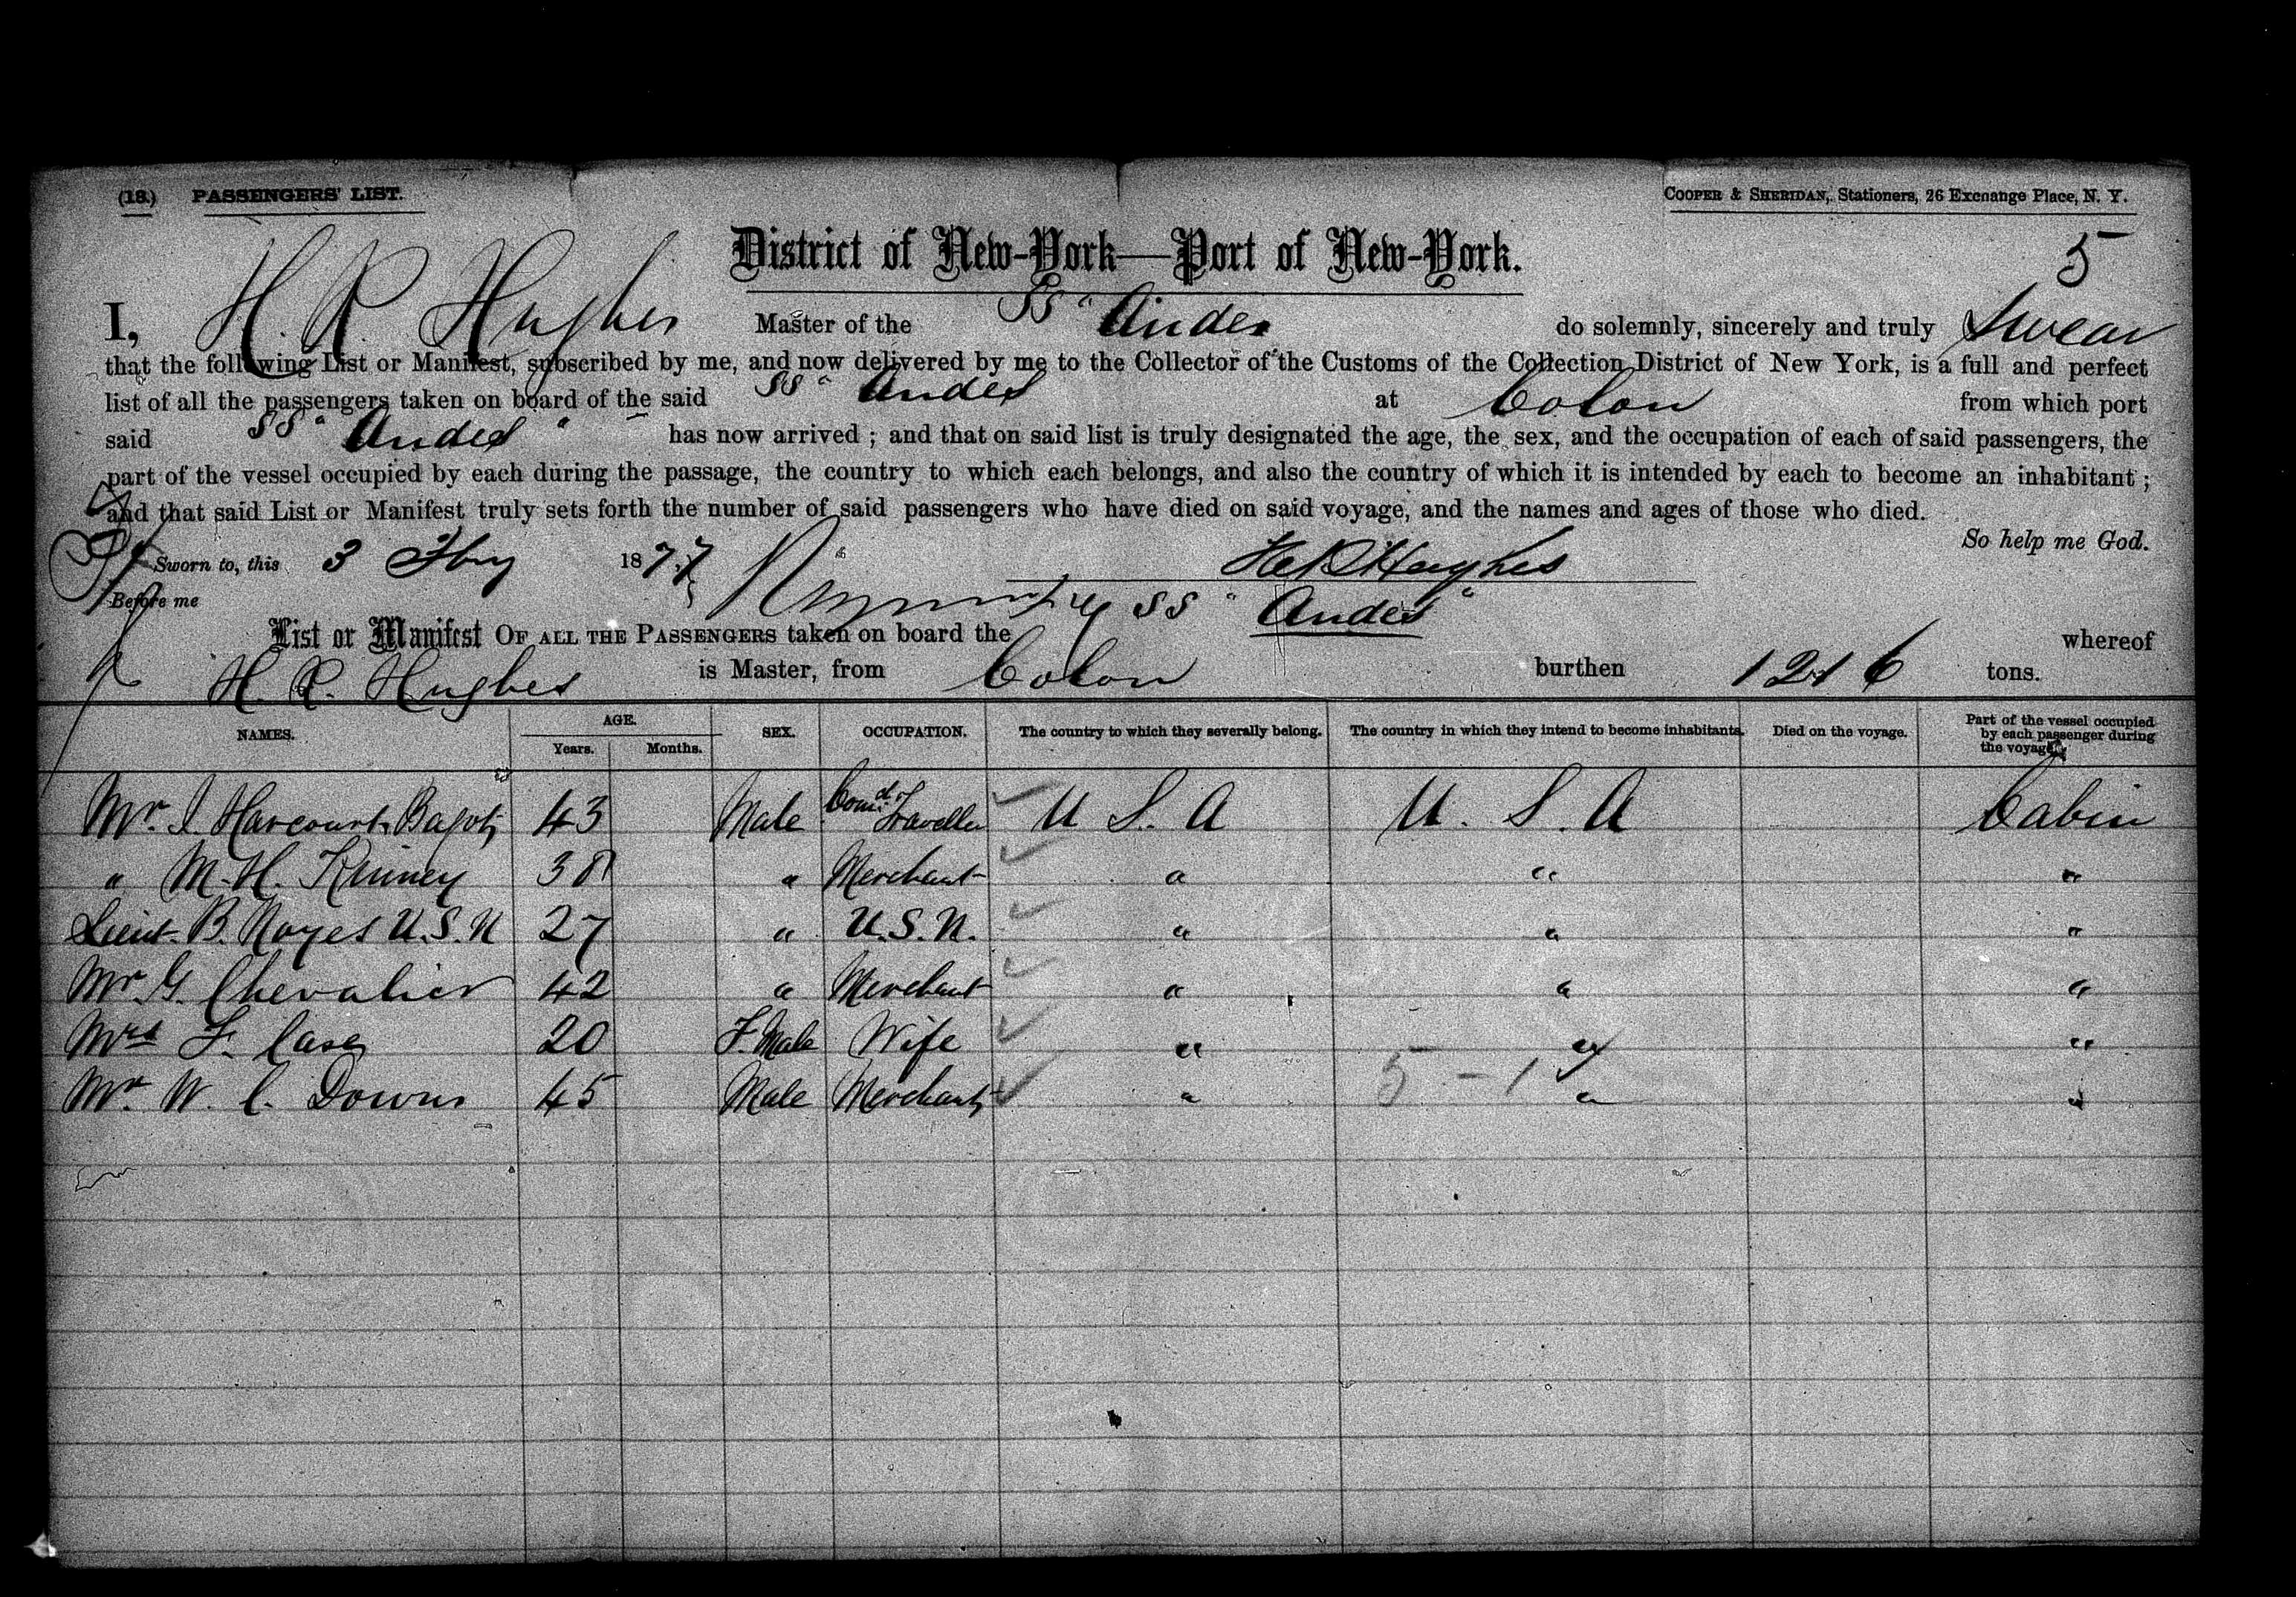 (18.) PASSENGERS' LIST. COOPER & SHERIDAN, Stationers, 26 Exchange Place, N. Y.
District of New-York—Port of New-York. 5
I, H. P. Hughes Master of the SS "Andes do solemnly, sincerely and truly Swear
that the following List or Manifest, subscribed by me, and now delivered by me to the Collector of the Customs of the Collection District of New York, is a full and perfect
list of all the passengers taken on board of the said SS "Andes at Colon from which port
said SS "Andes" has now arrived ; and that on said list is truly designated the age, the sex, and the occupation of each of said passengers, the
part of the vessel occupied by each during the passage, the country to which each belongs, and also the country of which it is intended by each to become an inhabitant ;
and that said List or Manifest truly sets forth the number of said passengers who have died on said voyage, and the names and ages of those who died.
So help me God.
Sworn to, this 3 Fby 1877 H P Hughes
Before me
List or Manifest OF ALL THE PASSENGERS taken on board the SS "Andes" whereof
H. P. Hughes is Master, from Colon burthen 1216 tons.
NAMES. AGE. Years. Months. SEX. OCCUPATION. The country to which they severally belong. The country in which they intend to become inhabitants. Died on the voyage. Part of the vessel occupied by each passenger during the voyage.
Mr. J. Harcourt Bagot 43 Male Comd. Traveller U S. A U. S. A Cabin
" M. H. Kinney 38 " Merchant " " "
Lieut. B. Noyes U.S.N 27 " U.S.N. " " "
Mr G. Chevalier 42 " Merchant " " "
Mrs F. Case 20 F. Male Wife " " "
Mr. W. C. Downs 45 Male Merchant " 5 - 1 " "